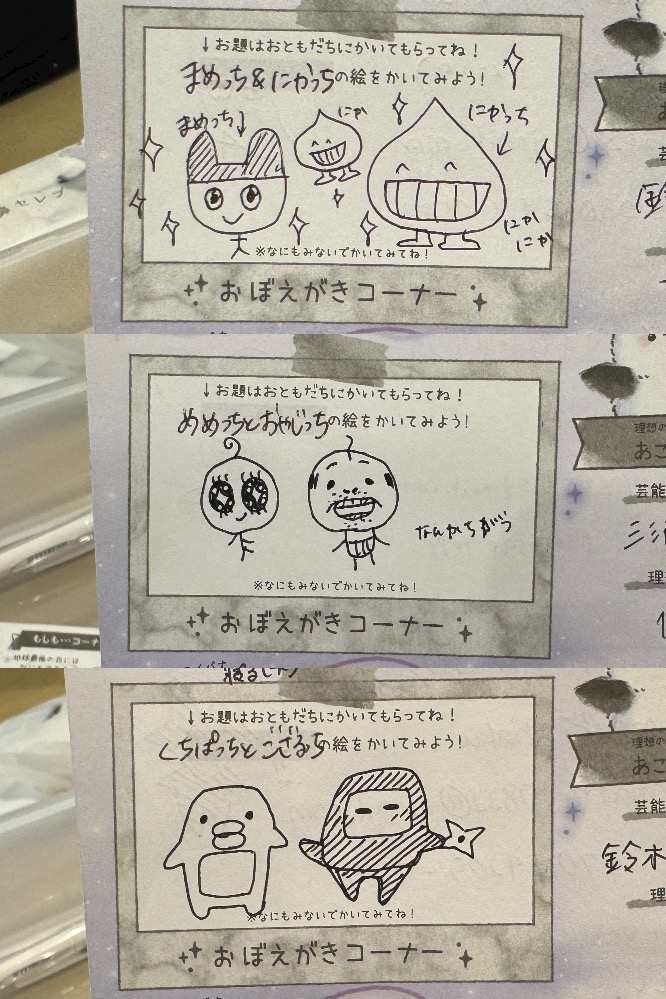 ↓お題はおともだちにかいてもらってね!
まめっち&にかっちの絵をかいてみよう!
まめっち↓
にか
にかっち
にか
にか
セレブ
※なにもみないでかいてみてね!
おぼえがきコーナー
↓お題はおともだちにかいてもらってね!
めめっちとおやじっちの絵をかいてみよう!
なんかちがう
※なにもみないでかいてみてね!
おぼえがきコーナー
理想の
あこ
芸能
理
もしも…コーナ
地球最後の日には
寝る
↓お題はおともだちにかいてもらってね!
くちぱっちとござるっちの絵をかいてみよう!
※なにもみないでかいてみてね!
おぼえがきコーナー
理想の
あこ
芸能
鈴木
理